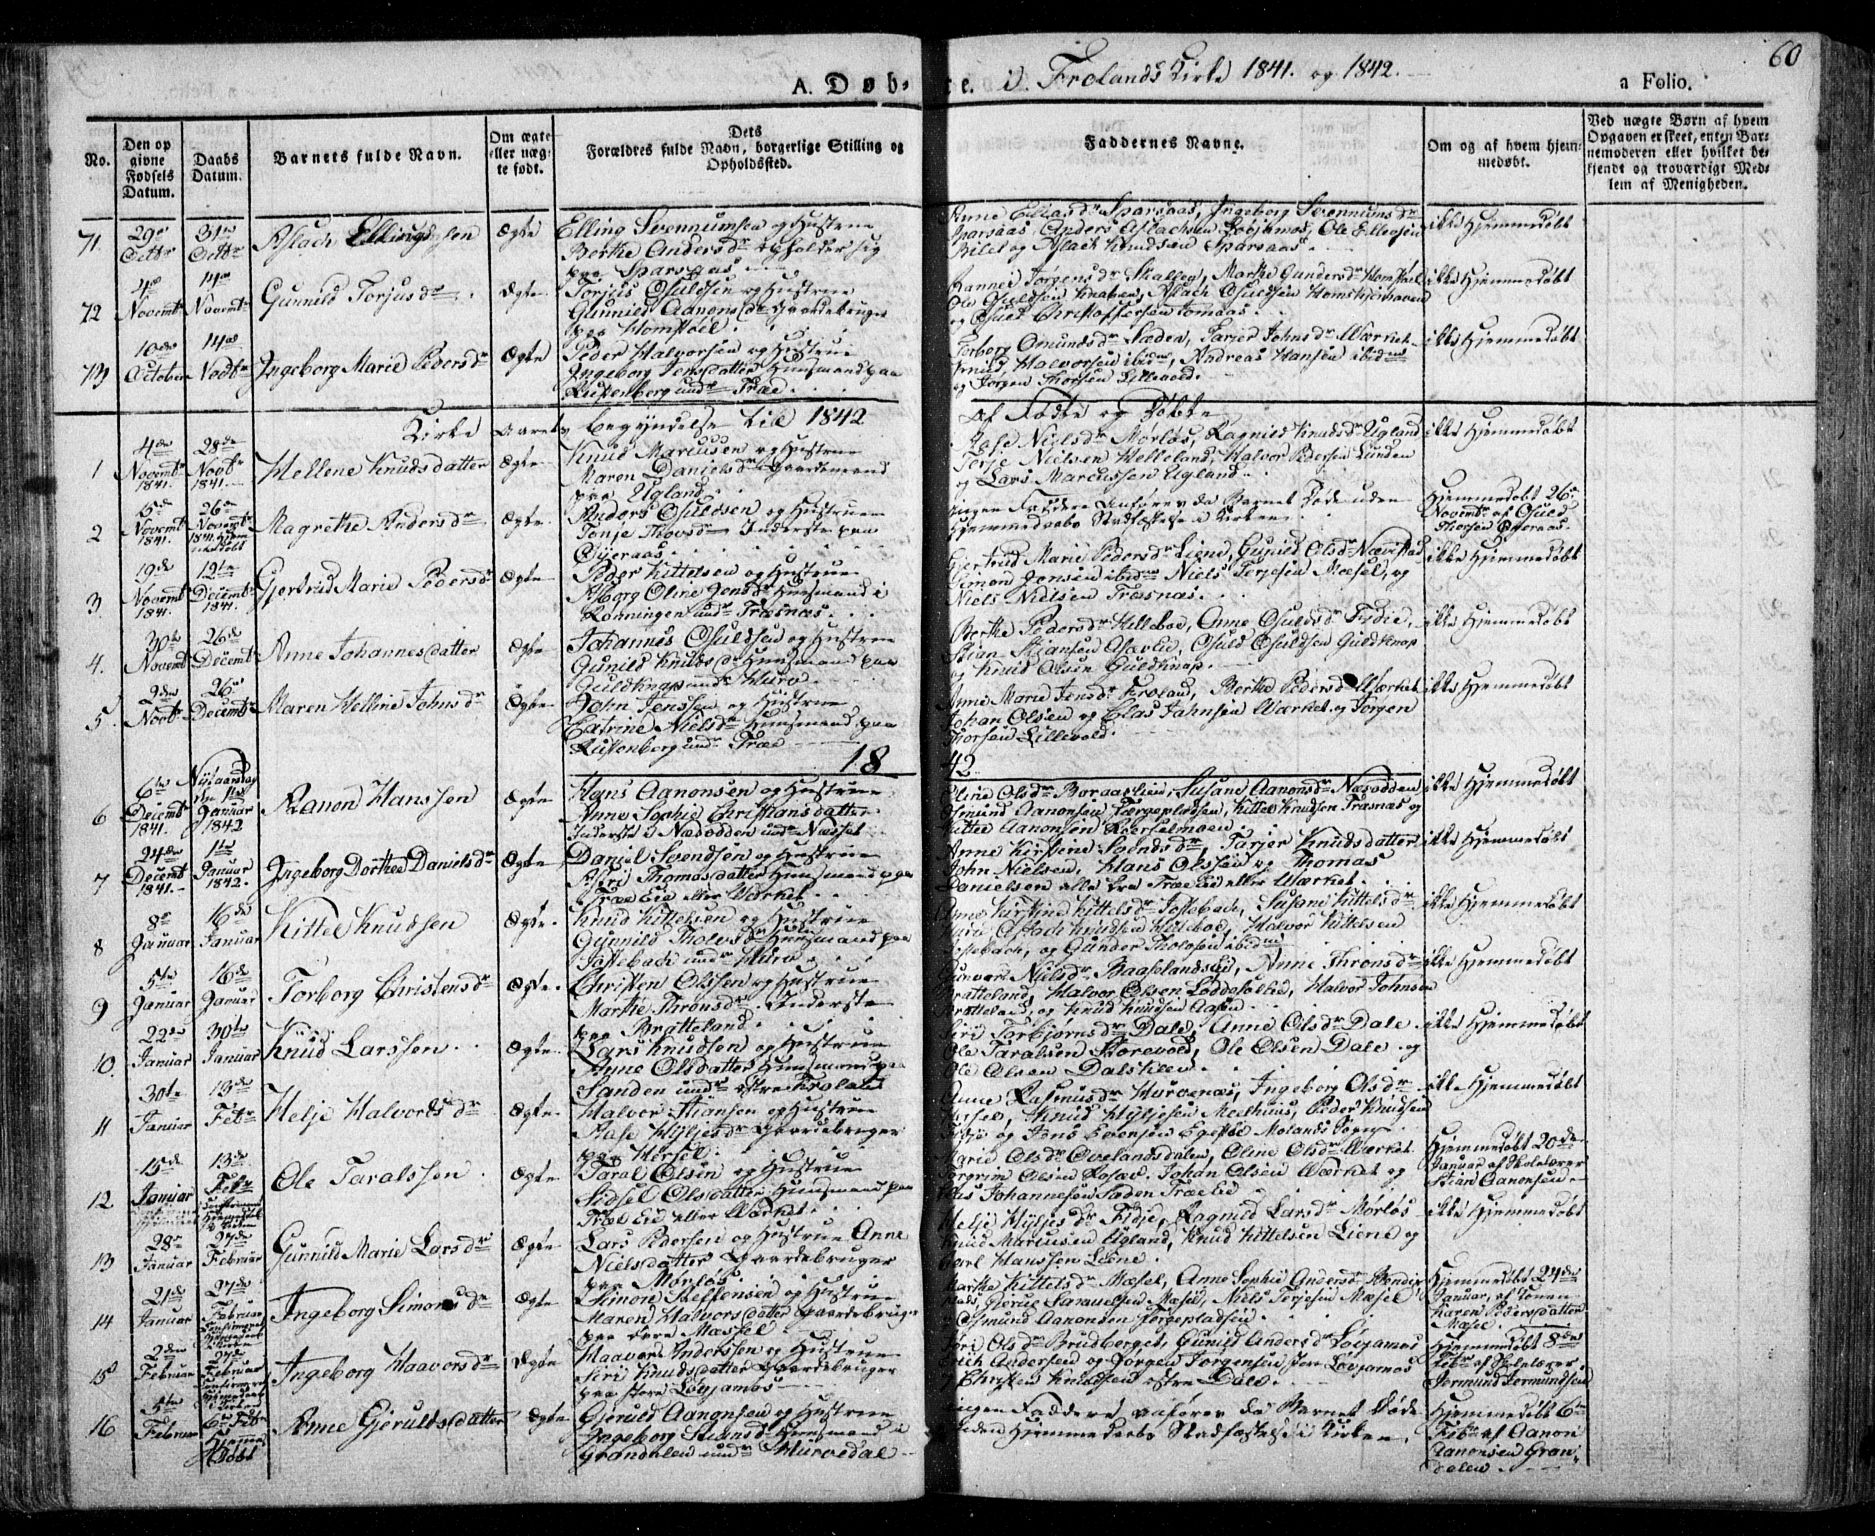 60
A. Døb- te. i Frolands Kirke 1841. og 1842.
a Folio.
No.
Den op givne Fødsels Datum.
Daabs Datum.
Barnets fulde Navn.
Om ægte eller uæg- te født.
Dets Forældres fulde Navn, borgerlige Stilling og Opholdssted.
Faddernes Navne.
Om og af hvem hjem- medøbt.
Ved uægte Børn af hvem Opgaven er skeet, enten Bar- nemoderen eller hvilket be- kjendt og troværdigt Med- lem af Menigheden.
71. 29de Octbr 31te Octbr Aslach Ellingsen Ægte Elling Svennumsen og Hustrue
Berthe Andersdr opholder sig
paa Sparsaas
Anne Eliasdr Sparsaas, Ingeborg Svennumsdr
Sparsaas, Anders Aslachsen Løvjomås, Ole Ellevsen
og Aslach Knudsen Sparsaas
ikke Hjemmedøbt
72 Novembr 14de Novembr Gunnild Torjusdr Ægte Torjus Osuldsen og Hustrue
Gunnild Aanonsdr Gaardebruger
paa Homstøl
Jørgensdr Skalleg, Marthe Gundersdr Homstøl
Ole Osuldsen Knaben, Aslach Osuldsen
og Osuld Christoffersen
ikke Hjemmedøbt
73 10de October 14de Novbr Ingeborg Marie Pedersdr Ægte Peder Halvorsen og Hustrue
Ingeborg Jensdatter Huusmand paa
Risenberg undr Træe
Torborg Omundsdr Laden, Tarjer Johnsdr Værket
Halvorsen ibidm, Andreas Hansen ibidm
og Jørgen Thorsen Lillevold
ikke Hjemmedøbt
Kirke Aarets begyndelse til 1842 af Fødte og Døbte
1 4de Novembr 1841. 28de Novbr 1841. Hellene Knudsdatter Ægte Knud Marcussen og Hustrue
Maren Danielsdr Gaardmand
paa Ugland
Aase Nielsdr Mørløs, Ragnild Knudsdr Ugland
Terje Nielsen Helleland, Halvor Pedersen Lunden
og Lars Marcussen Ugland
ikke Hjemmedøbt
2 Novembr 1841. 26de Novembr 1841. Magrethe Andersdr Ægte Anders Osuldsen og Hustrue
Tonje Thorsdr Inderste paa
Ingen Faddere anføres da Barnet døde uden
Hjemmedaabs Stadfæstelse i Kirken
Hjemmedøbt 26de
Novembr af Osuld
Thorsen
3. 19de Novembr 1841. 12te Decembr 1841. Gjertrud Marie Pedersdr Ægte Peder Kittelsen og Hustrue
Asborg Oline Jensdr Huusmand i
Rønningen undr Træsnæs
Gjertrud Marie Pedersdr Liene, Gunild Olsdr Nævistad
Simon Jensen ibidm Niels Terjesen Mæsel, og
Niels Nielsen Træsnæs
ikke Hjemmedøbt
4. 30te Novembr 26de Decembr Anne Johannesdatter Ægte Johannes Osuldsen og Hustrue
Gunild Knudsdr Huusmand paa
Guldknap undr Hurv
Berthe Pedersdr Helleboe, Anne Osuldsdr Fidje,
Stian Stiansen Osuld Osuldsen Guldknap
og Knud Olsen Guldknap
ikke Hjemmedøbt
5. 2den Novbr 26de Decembr Maren Helline Johnsdr Ægte John Jenssen og Hustrue
Catrine Nielsdr Huusmand paa
Risenberg undr Træe
Anne Marie Jensdr Froland, Berthe Pedersdr Værket
Johan Olsen og Claes Johnsen Værket og Jørgen
Thorsen Lillevold
ikke Hjemmedøbt
1842
6 6te Decembr 1841. Nytaarsdag den 1ste Januar 1842 Aanon Hanssen Ægte Hans Aanonsen og Hustrue
Anne Sophie Christiansdatter
Inderste i Næsodden undr Næset
Oline Olsdr Boraaslien, Susane Aanonsdr Næsodden
Osmund Aanonsen Færgepladsen, Kittel Knudsen Træsnæs og
Kittel Aanonsen
ikke Hjemmedøbt
7 24de Decembr 1841. 1ste Januar 1842. Ingeborg Dorthea Danielsdr Ægte Daniel Svendsen og Hustrue
Thomasdatter Huusmand paa
Træe Eie eller Værket
Anne Kirstine Svendsdr, Tarjer Knudsdatter
John Nielsen, Hans Olsen og Thomas
Danielsen alle fra Træe Eie eller Værket
ikke Hjemmedøbt
8 8de Januar 16de Januar Kittel Knudsen Ægte. Knud Kittelsen og Hustrue
Gunnild Tholvsdr Huusmand paa
Jossebach undr Hurv
Anne Kirstine Kittelsdr Jossebach, Susane Kittelsdr
Hurv Aslach Knudsen Helleboe, Halvor Kittelsen
Jossebach, og Gunder Tholvsen ibidm
ikke Hjemmedøbt
9 5te Januar 16de Januar Torborg Christensdr Ægte. Christen Olssen og Hustrue
Marthe Thronsdr Inderste
paa Bratteland
Nielsdr Baaselandslid, Anne Thronsdr
Bratteland, Halvor Olsen Loddesølid, Halvor Johnsen
Bratteland, og Knud Knudsen Aasen
ikke Hjemmedøbt
10 22de Januar 30te Januar Knud Larssen Ægte Lars Knudsen og Hustrue
Anne Olsdatter Huusmand paa
Sanden undr østre Froland
Siri Torbjørnsdr Dale, Anne Olsdr Dale
Ole Taralsen Storevold, Ole Olsen Dale og
Ole Olsen Dalshelen
ikke Hjemmedøbt
11 30te Januar 13de Febr Helje Halvorsdr Ægte Halvor Stiansen og Hustrue
Aase Hyljesdr Gaardebruger
paa Hersel
Anne Rasmusdr Hurvenæs, Ingeborg Olsdr
Hersel, Knud Hyljesen Mæthuus, Peder Knudsen
Fidje og Jens Evensen Molands Sogn
ikke Hjemmedøbt
12 15de Januar 13de Febr Ole Taralssen Ægte Taral Olsen og Hustrue
Sidsel Olsdatter Huusmand paa
Træe Eie eller Værket
Marie Olsdr Øvelandsdalen, Oline Olsdr Værket
Torgrim Olsen Johan Olsen Værket og
Johannesen Laden Træe Eie
Hjemmedøbt 20de
Januar af Skolelærer
Stian Aanonsen
13 28de Januar 27de Februar Gunnild Marie Larsdr Ægte Lars Pedersen og Hustrue Anne
Nielsdatter Gaardebruger
paa Mørløs
Helje Hyljesdr Fidje, Ragnild Larsdr Mørløs
Knud Marcussen Ugland, Knud Kittelsen Liene og
Carl Hanssen Liene
ikke Hjemmedøbt
14 21de Januar 27de Februar Ingeborg Simonsdr Ægte Simon Steffensen og Hustrue
Maren Halvorsdatter Gaardebruger
paa Mæsel
Marthe Kittelsdr Mæsel, Anne Sophie Andersdr
Samuelsen Mæsel, Niels Terjesen Mæsel
Osmund Aanonsen Færgepladsen
Hjemmedøbt 24de
Januar, af
Karen Pedersdatter
Mæsel
15 2den Februar 27de Februar Ingeborg Haavorsdr Ægte Haavor Anderssen og Hustrue
Siri Knudsdatter Gaardebruger
paa store Løvjomås
Siri Olsdr Brudberget, Gunild Andersdr Løvjomås
Erich Andersen og Jørgen Jørgensen store Løvjomås
og Christen Knudsen østre Dale
Hjemmedøbt 8de
Febr af Skolelærer
Jermund Jermundsen
16 5te Februar 6te Febr Hjemmedøbt Anne Gjeruldsdatter Ægte Gjeruld Aanonsen og Hustrue
Ingeborg Huusmand i
Grandalen undr Hurvedal
Ingen Faddere anføres da Barnet døde
uden Hjemmedaabs Stadfæstelse i Kirken
Hjemmedøbt 6te
Febr af Aanon
Aanonsen Gran-
dalen